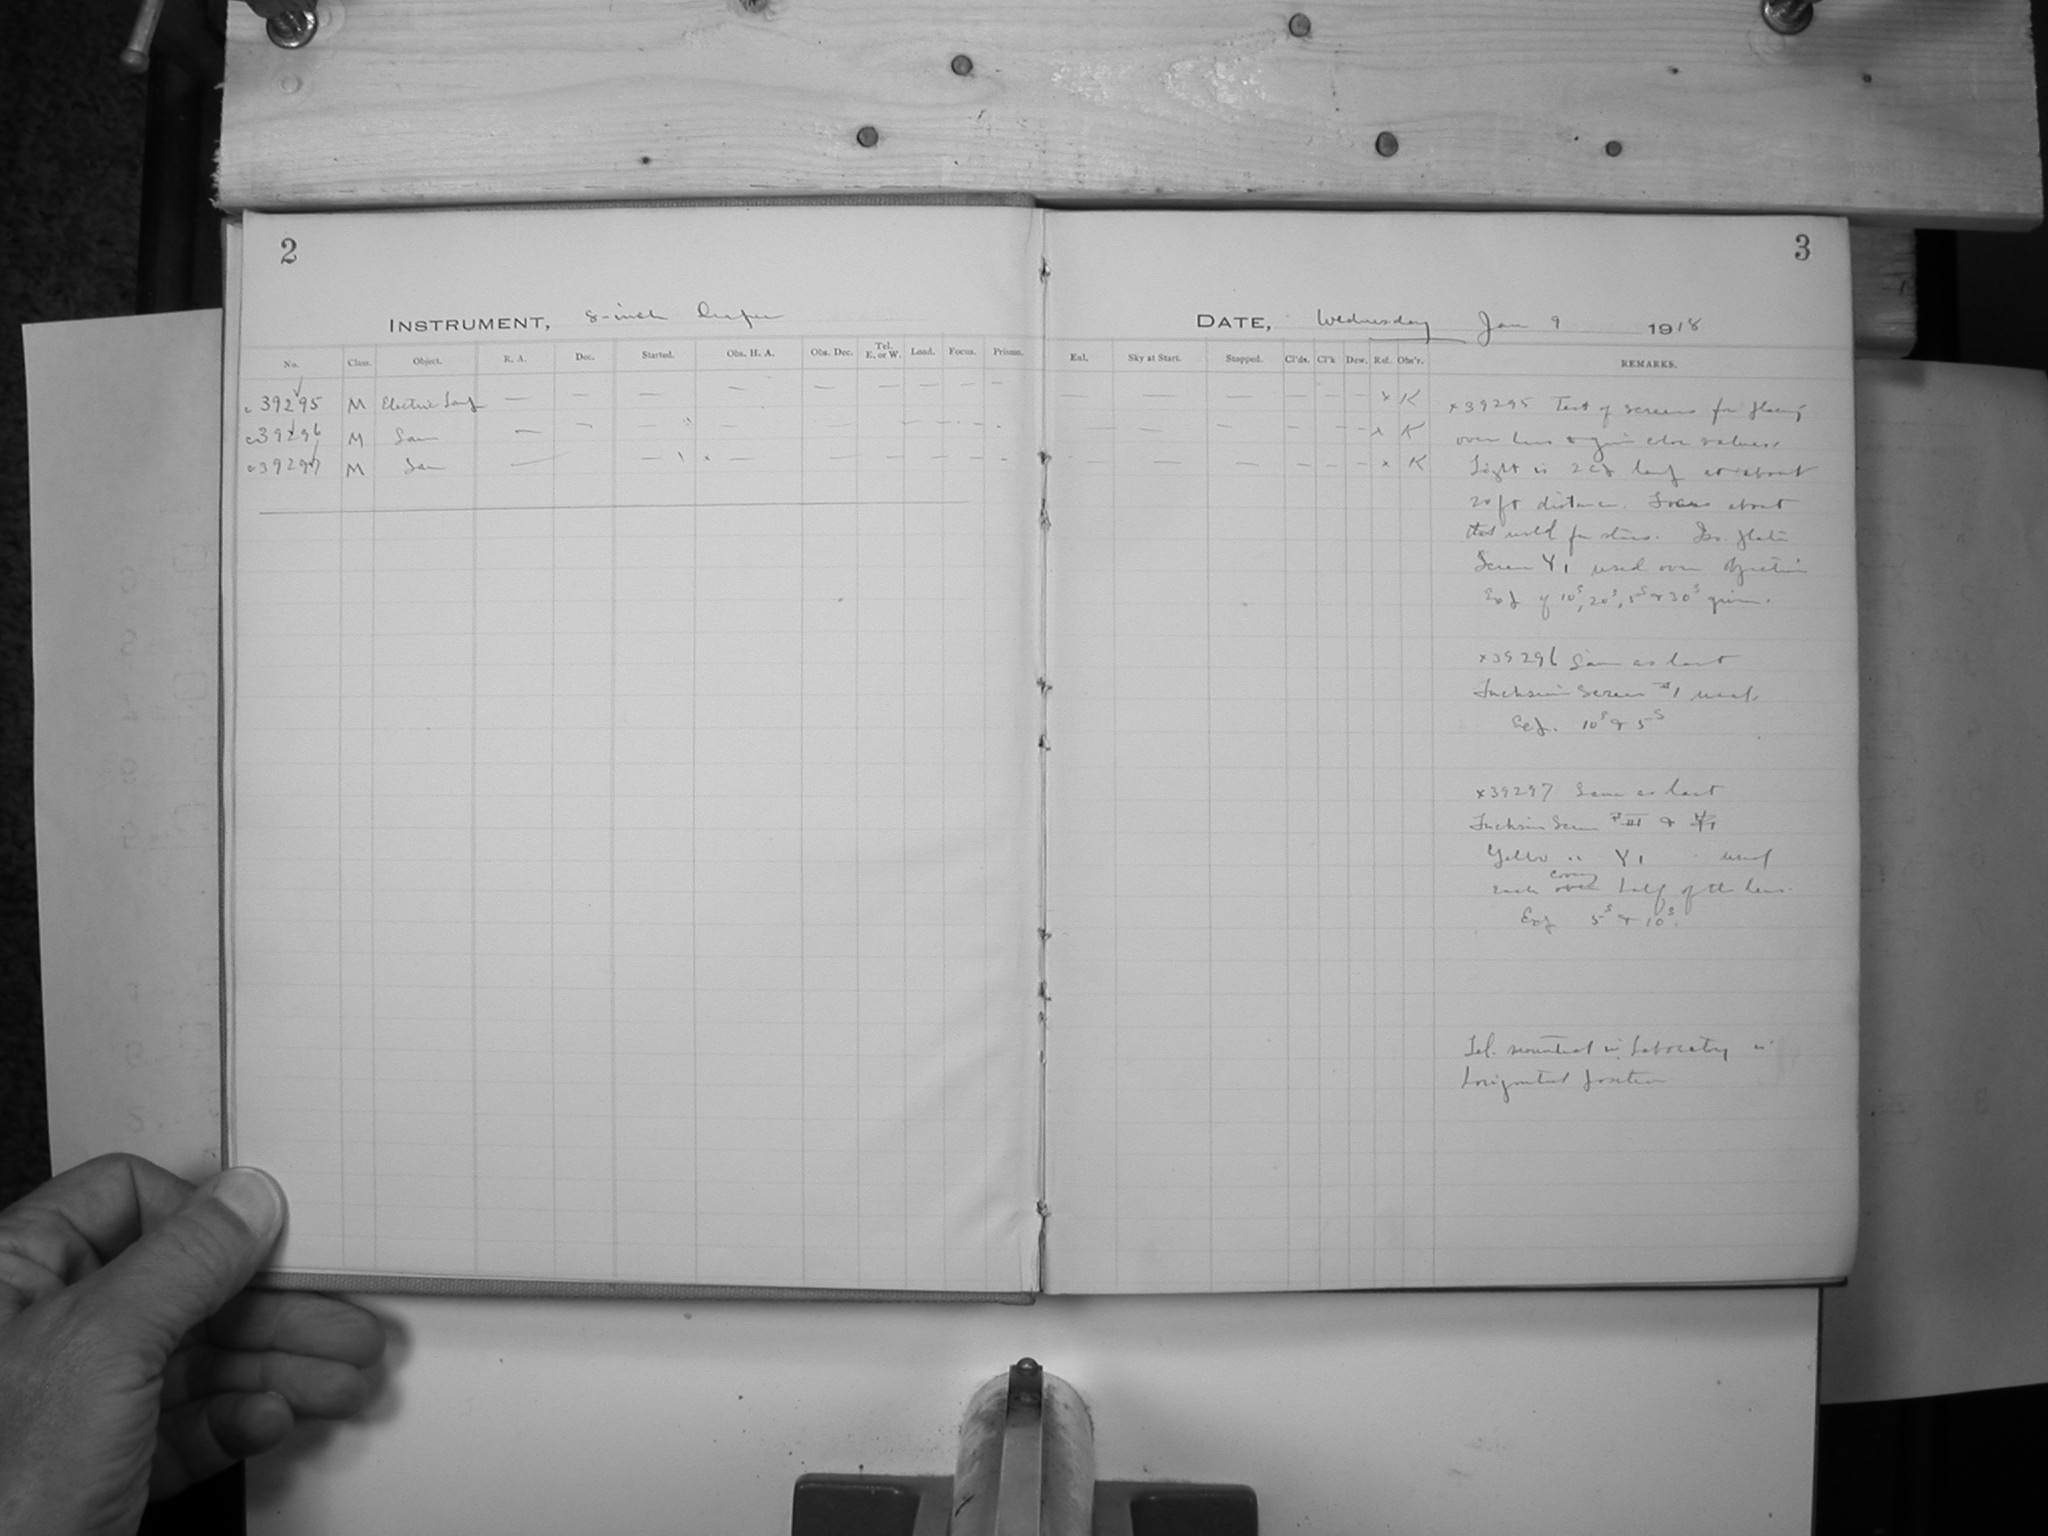 2
INSTRUMENT, 8-inch Draper
No. Class. Object. R. A. Dec. Started. Obs. H. A. Obs. Dec. Tel. E. or W. Load. Focus. Prisms.
c 39295 M Electric Lamp — — — — — — — — —
c 39296 M Same — — — — — — — — —
c 39297 M Same — — — — — — — —
3
DATE, Wednesday Jan 9 1918
Eul. Sky at Start. Stopped. Cl'ds. Cl'k Dew. Ref. Obs'r. REMARKS.
— — — — — — x K
— — — — — — x K
— — — — — — x K
x39295 Test of screens for placing
over lens to give color values.
Light is 2 cp lamp at about
20 ft distance. Focus about
that used for stars. Iso. plate
Screen Y1 used over objective
Exp of 10s, 20s, 5s & 30s given.
x39296 Same as last
Fuchsin Screen 1 used.
Exp. 10s & 5s
x39297 Same as last
Fuchsin Screen FIII &
Yellow " Y1 used
each covering half of the lens.
Exp 5s & 10s.
Tel. mounted in Laboratory in
horizontal position